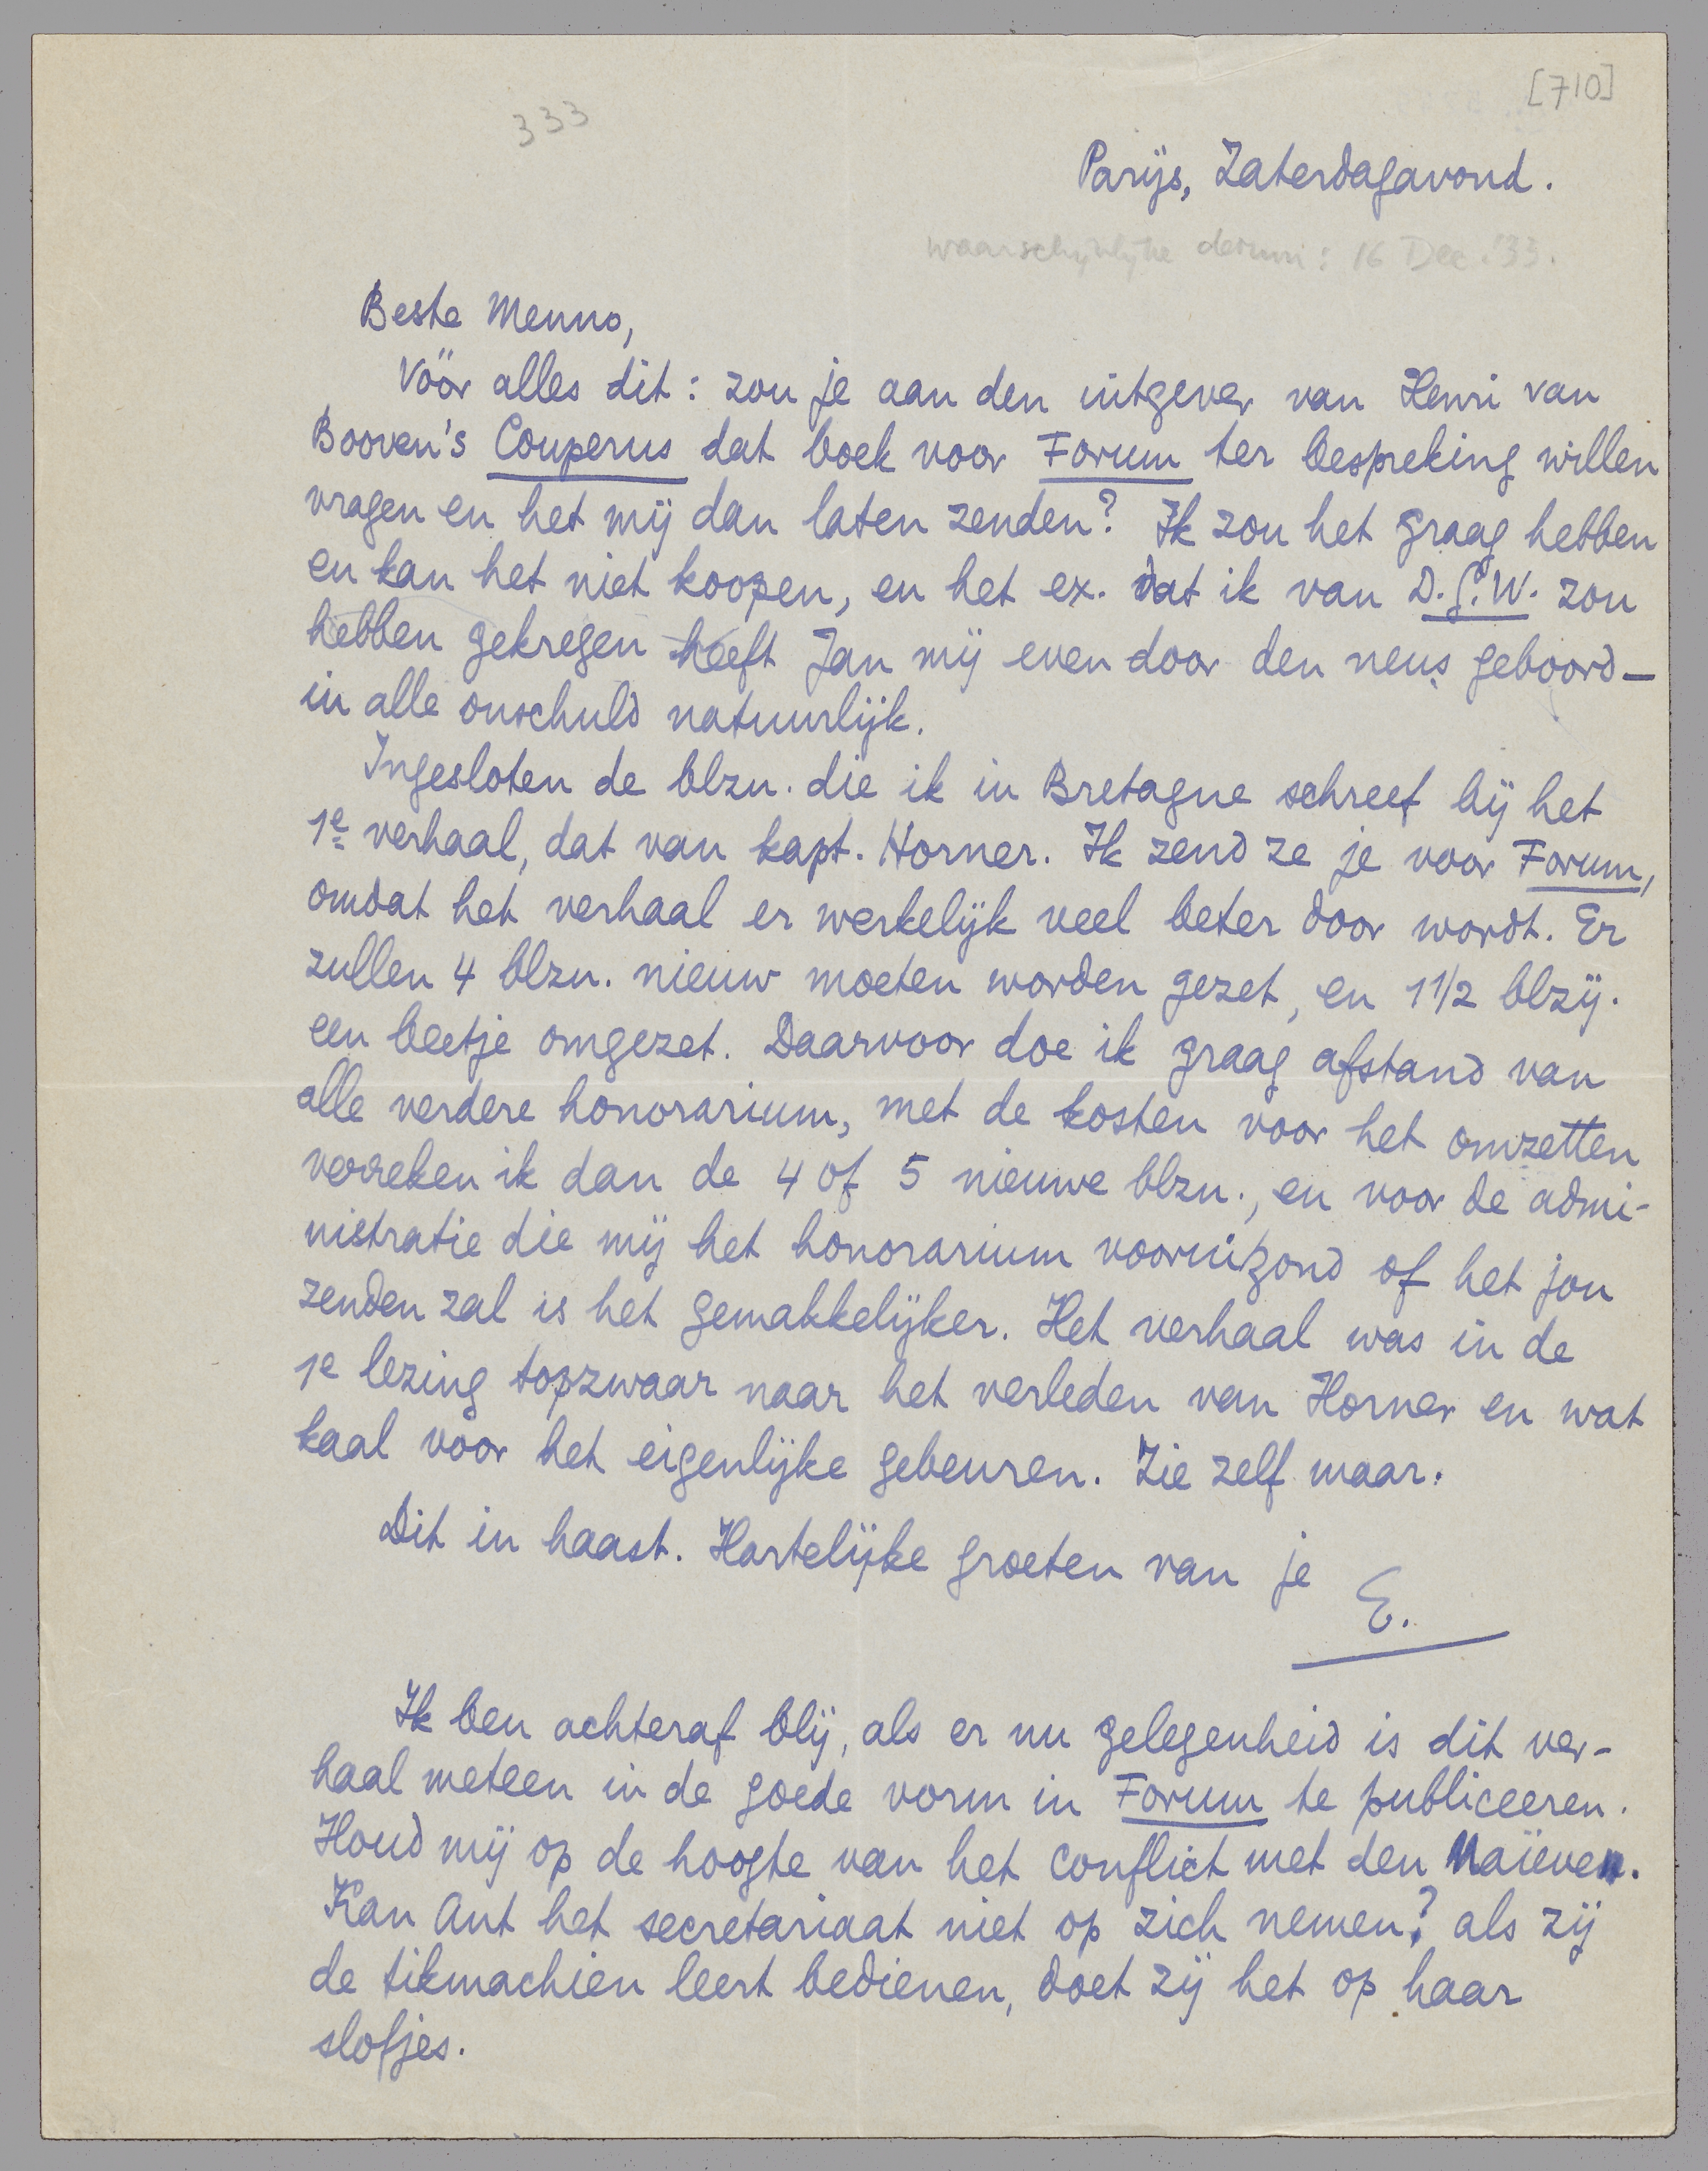 [710]
333
Parijs, Zaterdagavond.
waarschijnlijke datum: 16 Dec. '33.
Beste Menno,
Vóór alles dit: zou je aan den uitgever van Henri van
Booven's Couperus dat boek voor Forum ter bespreking willen
vragen en het mij dan laten zenden? Ik zou het graag hebben
en kan het niet koopen, en het ex. dat ik van D.G.W. zou
hebben gekregen heeft Jan mij even door den neus geboord —
in alle onschuld natuurlijk.
Ingesloten de blzn. die ik in Bretagne schreef bij het
1e verhaal, dat van kapt. Horner. Ik zend ze je voor Forum,
omdat het verhaal er werkelijk veel beter door wordt. Er
zullen 4 blzn. nieuw moeten worden gezet, en 1 1/2 blzij.
een beetje omgezet. Daarvoor doe ik graag afstand van
alle verdere honorarium, met de kosten voor het omzetten
verreken ik dan de 4 of 5 nieuwe blzn., en voor de admi-
nistratie die mij het honorarium vooruitzond of het jou
zenden zal is het gemakkelijker. Het verhaal was in de
1e lezing topzwaar naar het verleden van Horner en wat
kaal voor het eigenlijke gebeuren. Zie zelf maar.
Dit in haast. Hartelijke groeten van je
E.
Ik ben achteraf blij, als er nu gelegenheid is dit ver-
haal meteen in de goede vorm in Forum te publiceeren.
Houd mij op de hoogte van het conflict met den Naïeven.
Kan Ant het secretariaat niet op zich nemen? als zij
de tikmachien leert bedienen, doet zij het op haar
slofjes.